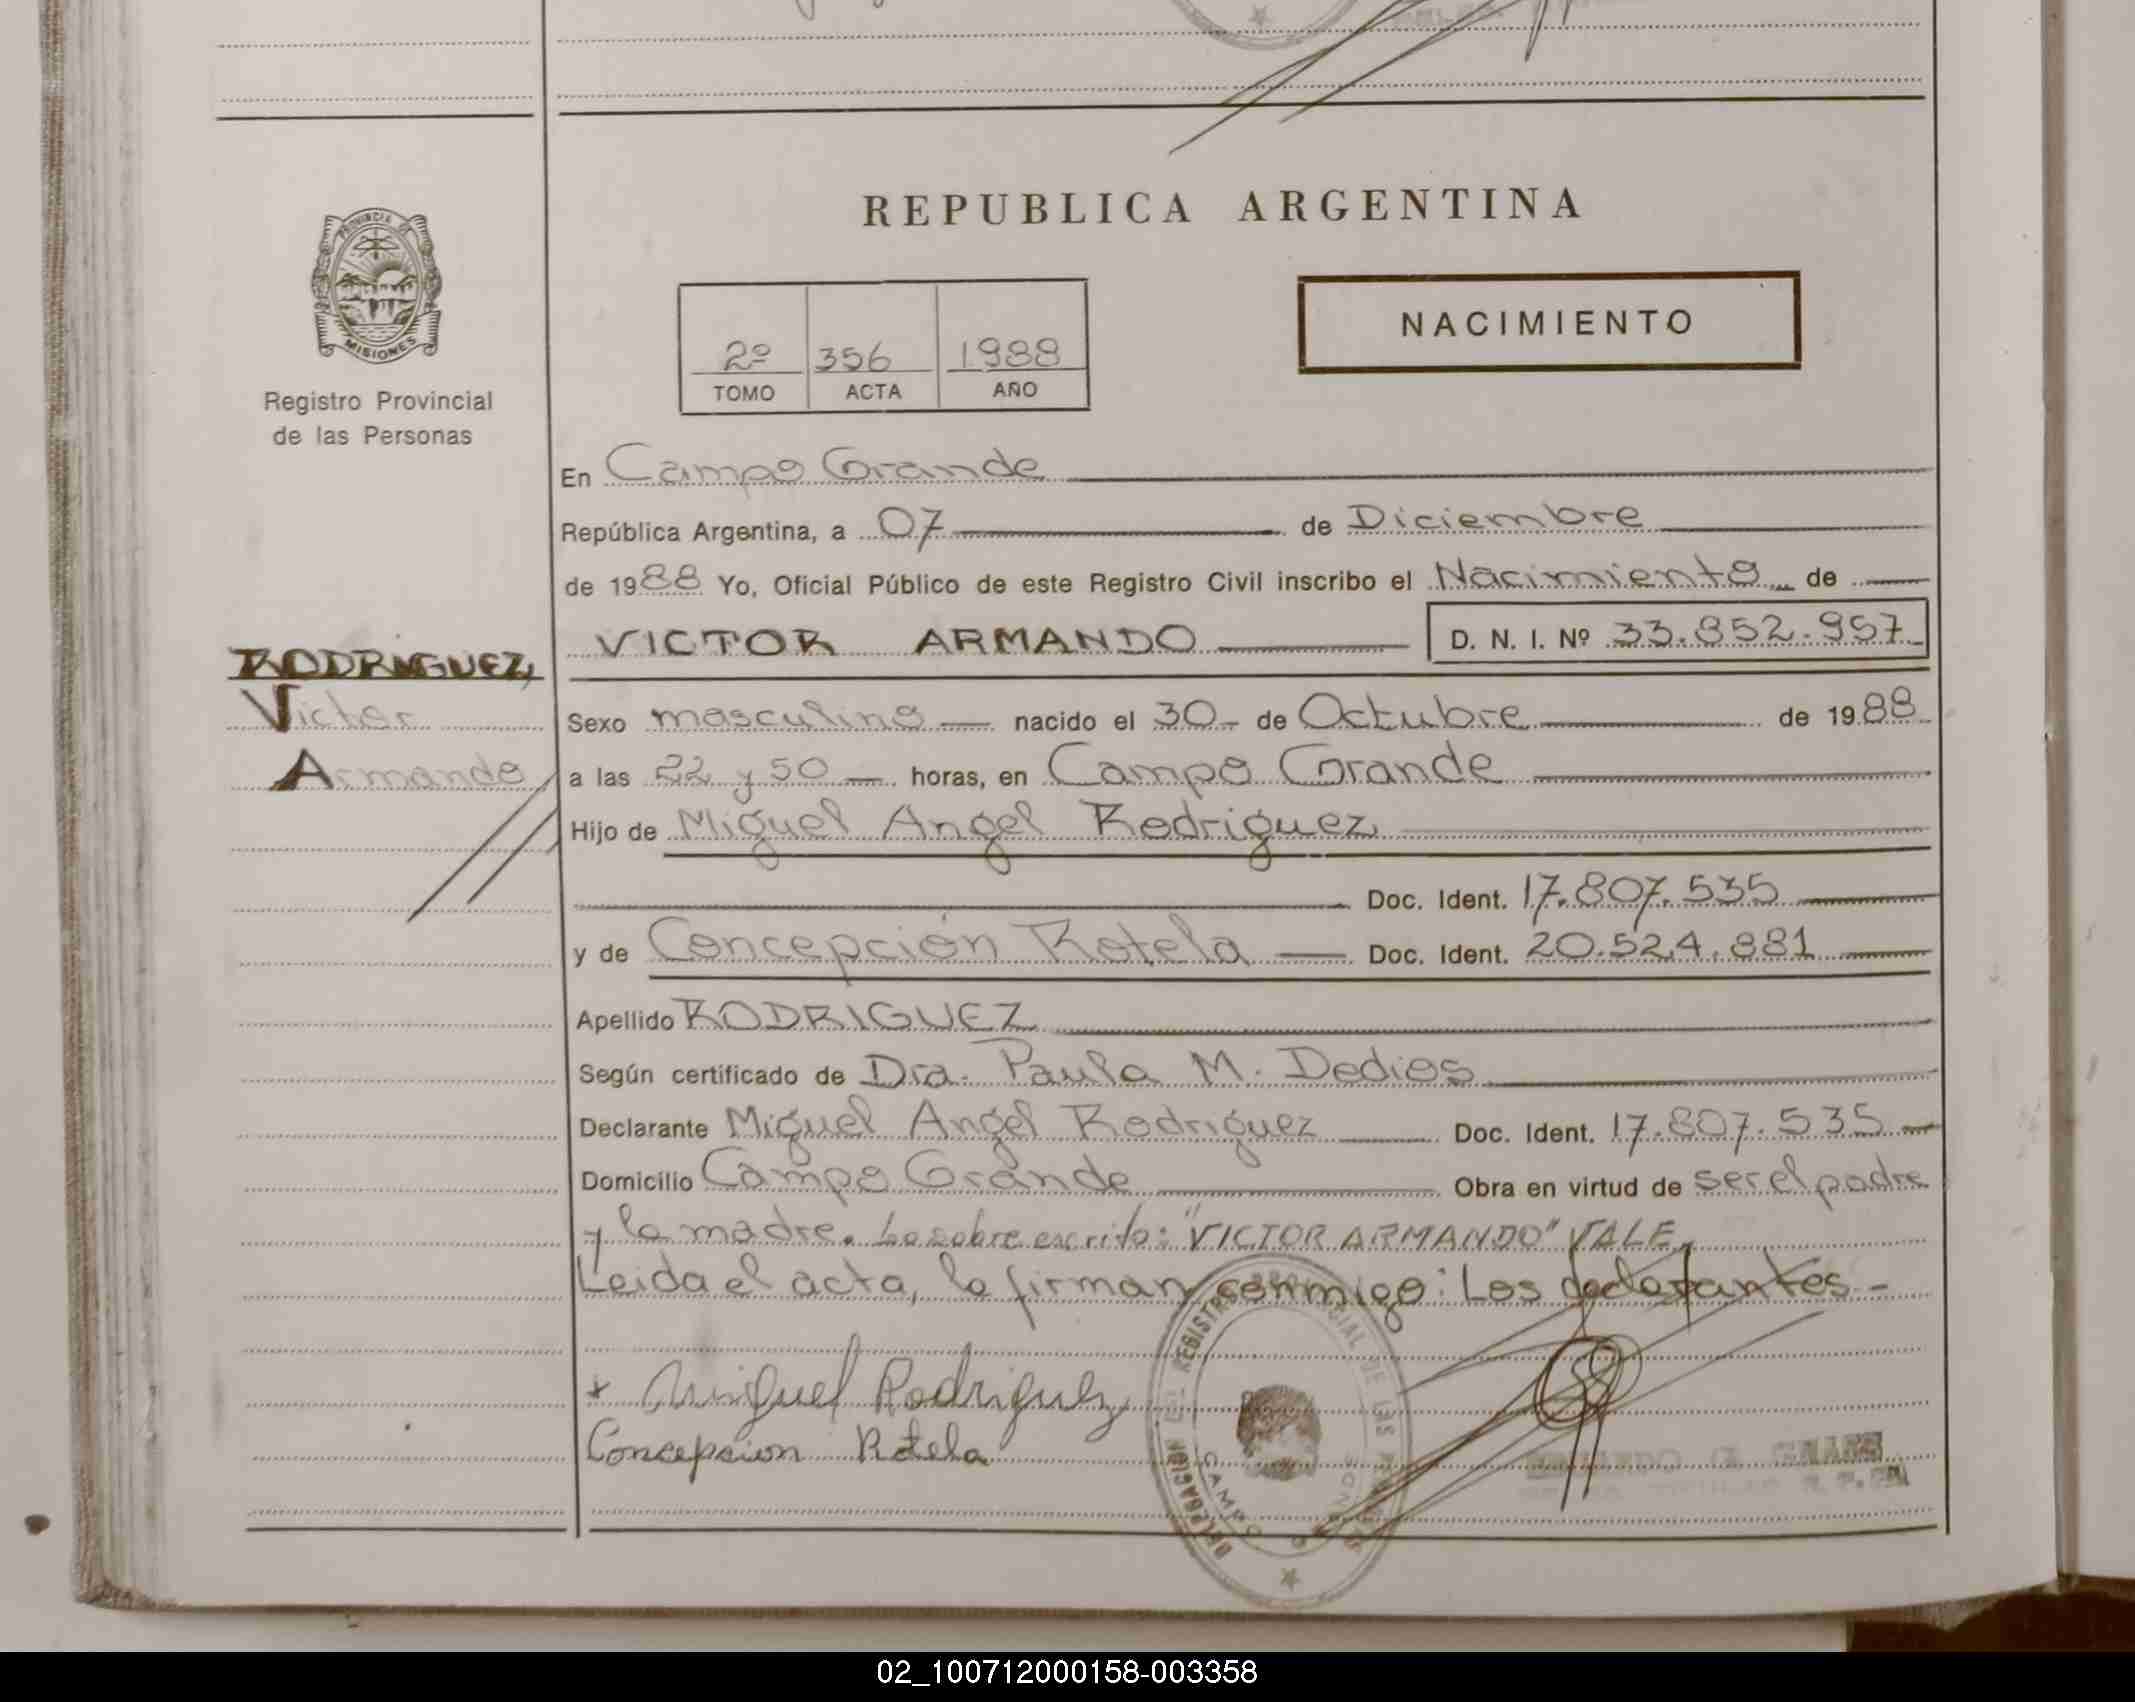 REPUBLICA ARGENTINA
PROVINCIA DE
MISIONES
Registro Provincial
de las Personas
NACIMIENTO
2º 356 1988
TOMO ACTA AÑO
En Campo Grande
República Argentina, a 07 de Diciembre
de 1988 Yo, Oficial Público de este Registro Civil inscribo el Nacimiento de
VICTOR ARMANDO D. N. I. Nº 33.852.957
RODRIGUEZ,
Victor
Armando
Sexo masculino nacido el 30 de Octubre de 1988
a las 22 y 50 horas, en Campo Grande
Hijo de Miguel Angel Rodriguez
Doc. Ident. 17.807.535
y de Concepción Rotela Doc. Ident. 20.524.881
Apellido RODRIGUEZ
Según certificado de Dra. Paula M. Dedios
Declarante Miguel Angel Rodriguez Doc. Ident. 17.807.535
Domicilio Campo Grande Obra en virtud de ser el padre
y la madre. Lo sobre escrito: "VICTOR ARMANDO" VALE
Leida el acta, la firman conmigo: Los declarantes -
Miguel Rodriguez
Concepcion Rotela
02_100712000158-003358